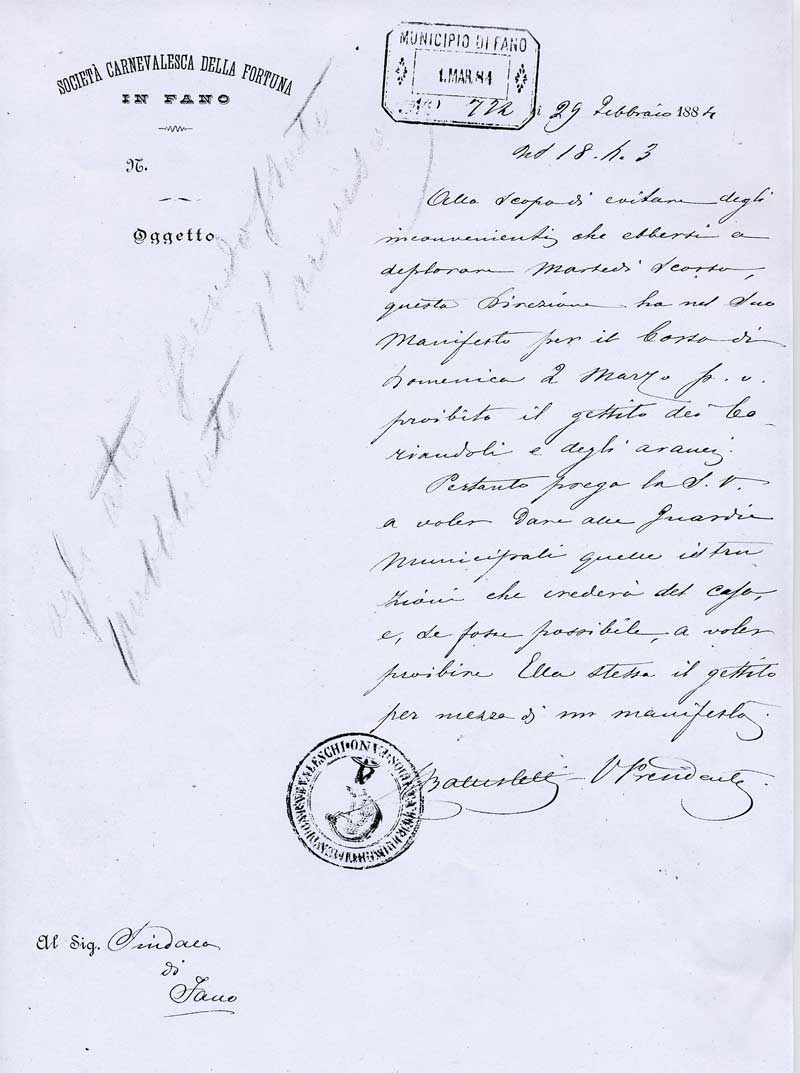 SOCIETÀ CARNEVALESCA DELLA FORTUNA
IN FANO
N.
Oggetto
MUNICIPIO DI FANO
1.MAR.84
No 722
29 Febbraio 1884
18. h. 3
Allo scopo di evitare degli
inconvenienti, che ebbersi a
deplorare Martedì scorso,
questa Direzione ha nel suo
Manifesto per il Corso di
Domenica 2 Marzo p. v.
proibito il gettito dei Co-
riandoli e degli aranci.
Pertanto prega la S. V.
a voler dare alle Guardie
Municipali quelle istru
zioni che crederà del caso,
e, se fosse possibile, a voler
proibire Ella stessa il gettito
per mezzo di un manifesto.
V Presidente
agli atti
pubblicato l'avviso
Al Sig. Sindaco
di
Fano